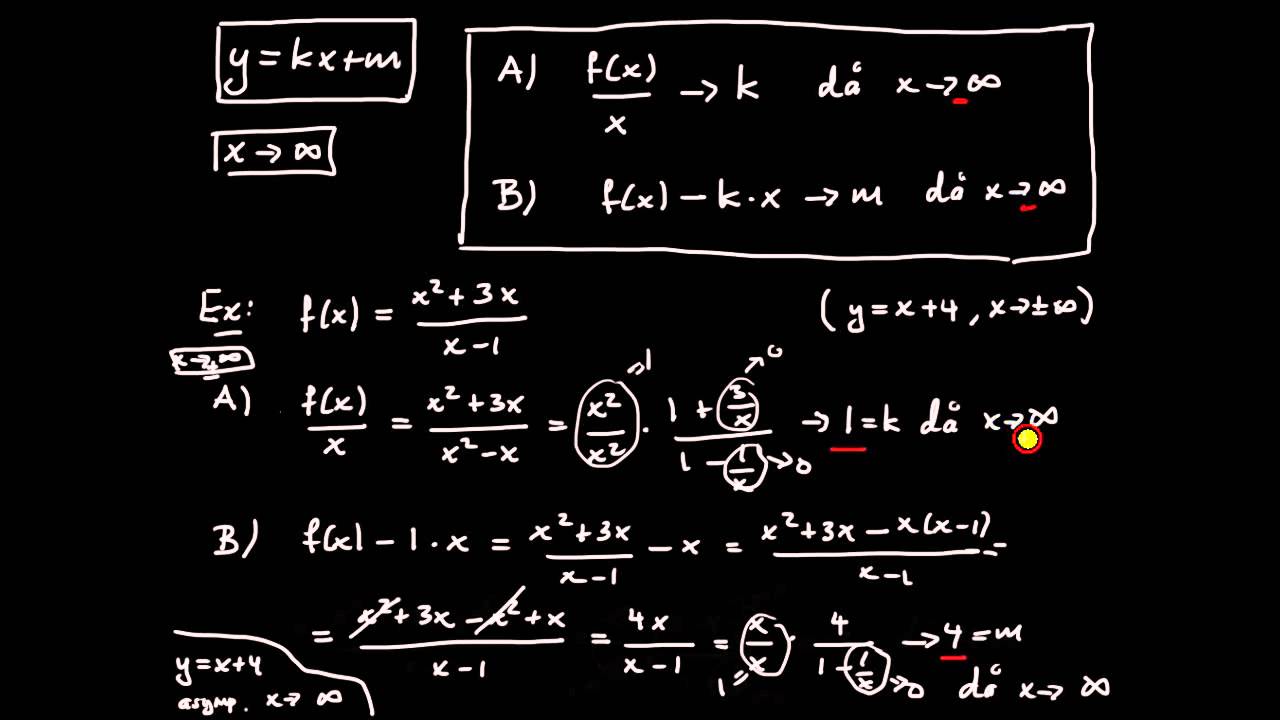 y = kx+m
x → ∞
A) f(x)/x → k då x → ∞
B) f(x) − k·x → m då x → ∞
Ex: f(x) = (x²+3x)/(x−1) (y = x+4, x → ±∞)
x → ∞
A) f(x)/x = (x²+3x)/(x²−x) = x²/x² · (1 + 3/x)/(1 − 1/x) → 1 = k då x → ∞
=1 → 0 → 0
B) f(x) − 1·x = (x²+3x)/(x−1) − x = (x²+3x − x(x−1))/(x−1) =
= (x²+3x − x²+x)/(x−1) = 4x/(x−1) = x/x · 4/(1 − 1/x) → 4 = m
1= → 0 då x → ∞
y = x+4
asymp. x → ∞